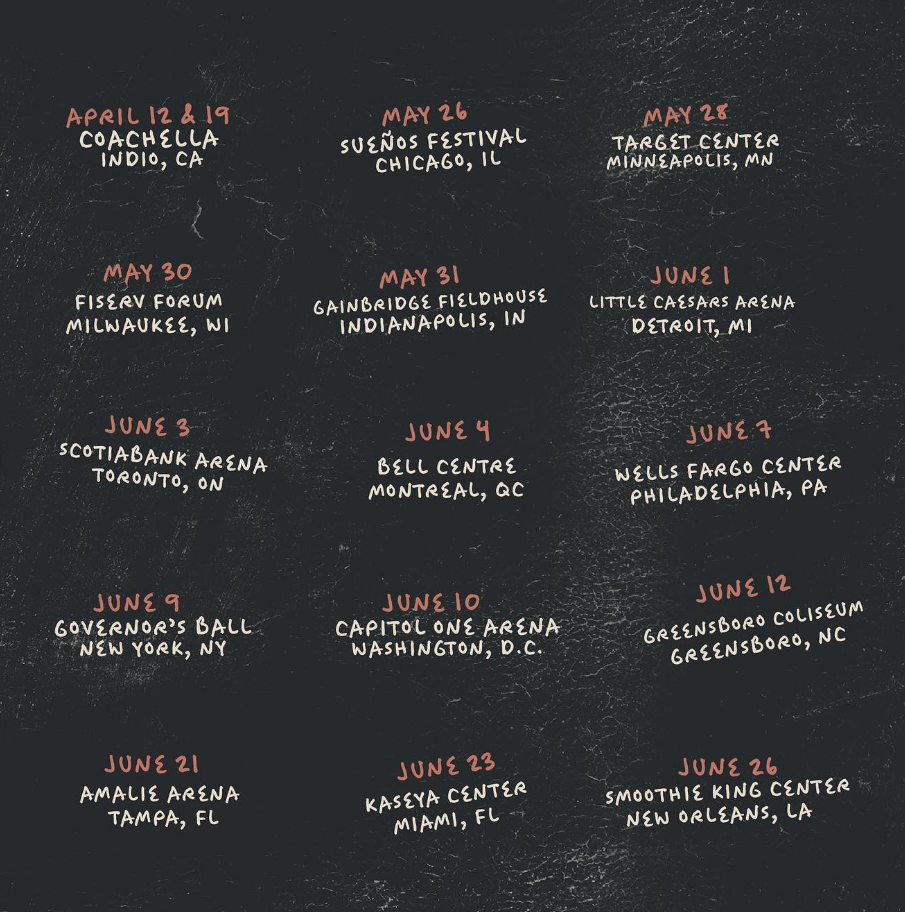 APRIL 12 & 19
COACHELLA
INDIO, CA
MAY 26
SUEÑOS FESTIVAL
CHICAGO, IL
MAY 28
TARGET CENTER
MINNEAPOLIS, MN
MAY 30
FISERV FORUM
MILWAUKEE, WI
MAY 31
GAINBRIDGE FIELDHOUSE
INDIANAPOLIS, IN
JUNE 1
LITTLE CAESARS ARENA
DETROIT, MI
JUNE 3
SCOTIABANK ARENA
TORONTO, ON
JUNE 4
BELL CENTRE
MONTREAL, QC
JUNE 7
WELLS FARGO CENTER
PHILADELPHIA, PA
JUNE 9
GOVERNOR'S BALL
NEW YORK, NY
JUNE 10
CAPITOL ONE ARENA
WASHINGTON, D.C.
JUNE 12
GREENSBORO COLISEUM
GREENSBORO, NC
JUNE 21
AMALIE ARENA
TAMPA, FL
JUNE 23
KASEYA CENTER
MIAMI, FL
JUNE 26
SMOOTHIE KING CENTER
NEW ORLEANS, LA